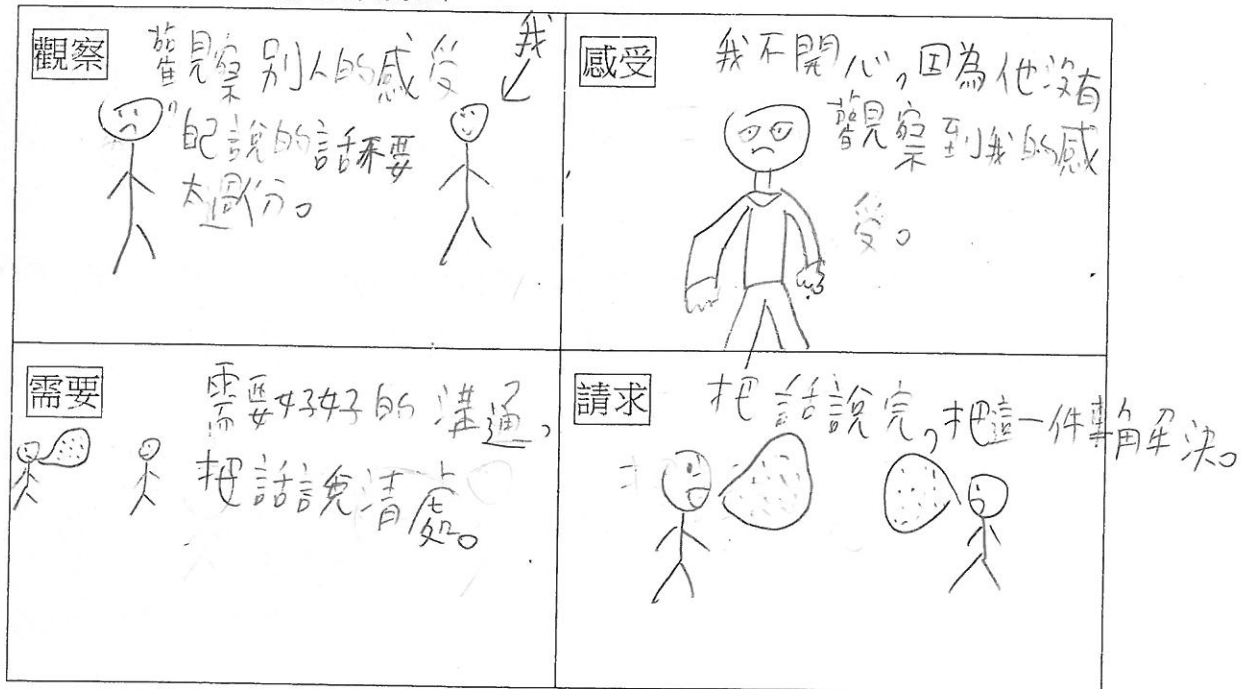 觀察
觀察別人的感受
我
自己說的話不要
太過份。
感受
我不開心，因為他沒有
觀察到我的感
受。
需要
需要好好的溝通，
把話說清處。
請求
把話說完，把這一件事解決。